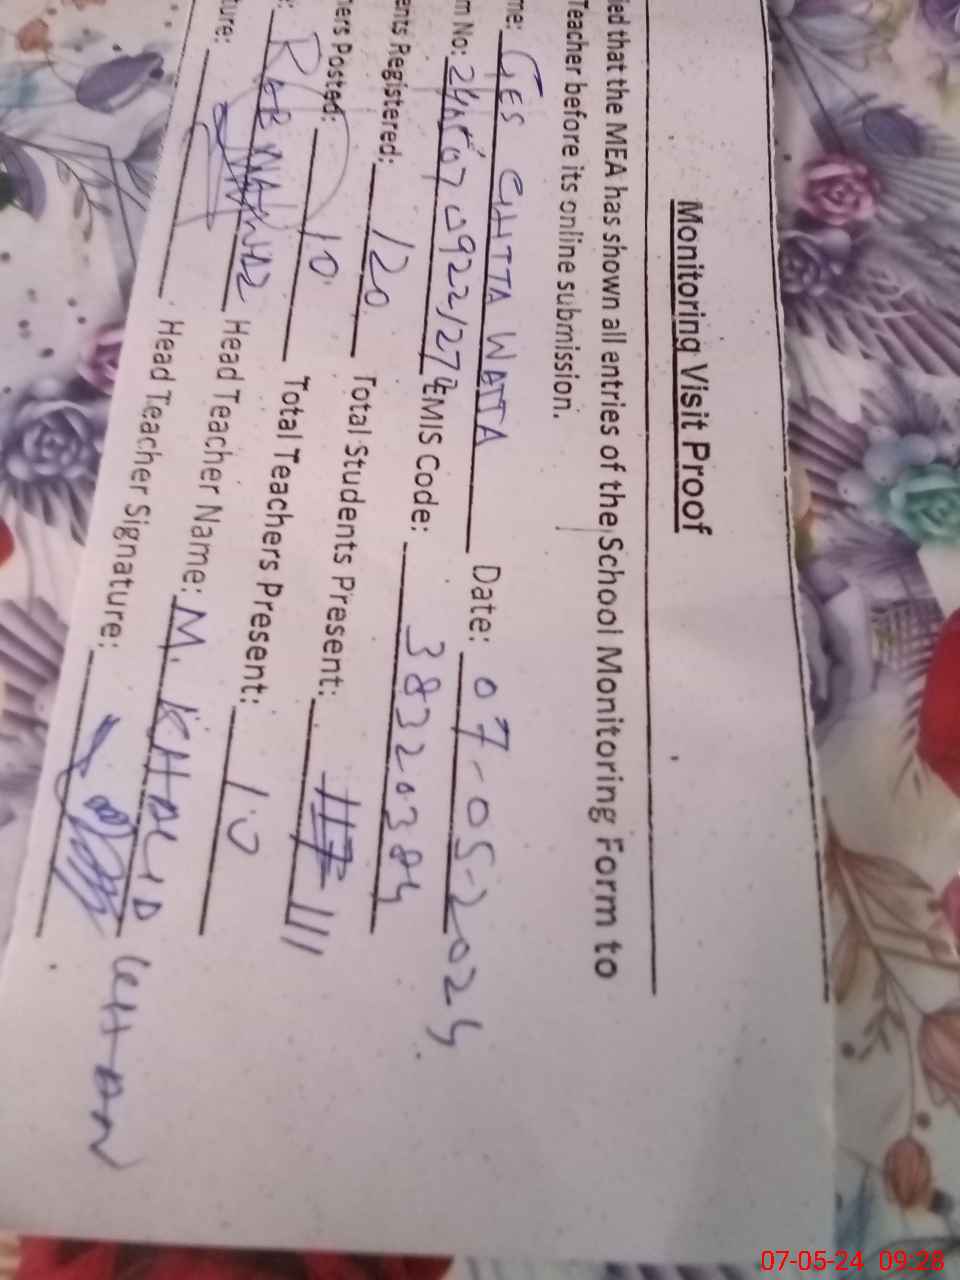 Monitoring Visit Proof
ied that the MEA has shown all entries of the School Monitoring Form to
Teacher before its online submission.
me: GES CHITTA WATTA Date: 07-05-2024
m No: EMIS Code: 38320384
ents Registered: 120 Total Students Present: 111
hers Posted: 10 Total Teachers Present: 10
: RAB NAWAZ Head Teacher Name: M. KHALID
ture: Head Teacher Signature:
07-05-24 09:28